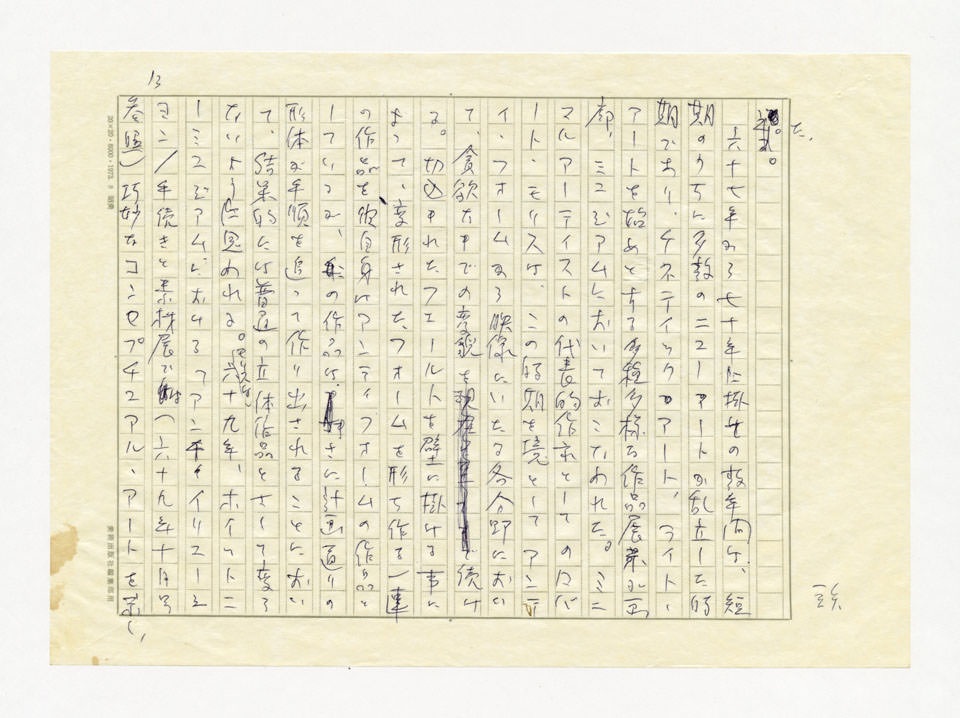 た。
六十七年から七十年に掛けの数年間は、短
期のうちに多数のニューアートが乱立した時
期であり、キネティックアート、ライト・
アートを始めとする多種多様な作品展示が画
廊、ミュジアムにおいておこなわれた。ミニ
マルアーティストの代表的作家としてのロバ
ート・モリスは、この時期を境としてアンテ
イ・フォームから映像にいたる各分野におい
て、貪欲なまでの変貌を 続け
る。切込まれたフェールトを壁に掛ける事に
よって、変形されたフォームを形ち作る一連
の作品を彼自身はアンティフォームの作品と
しているが、 の作品は、 さに計画通りの
形体が手順を追って作り出されることにおい
て、結果的には普通の立体作品とさして変ら
ないように思われる。 六十九年、ホイットニ
ーミュジアムにおける アンチイリュージ
ョン/手続きと素材展で （六十九年十月号
参照）巧妙なコンセプチュアル・アートを示し、
13
20×20